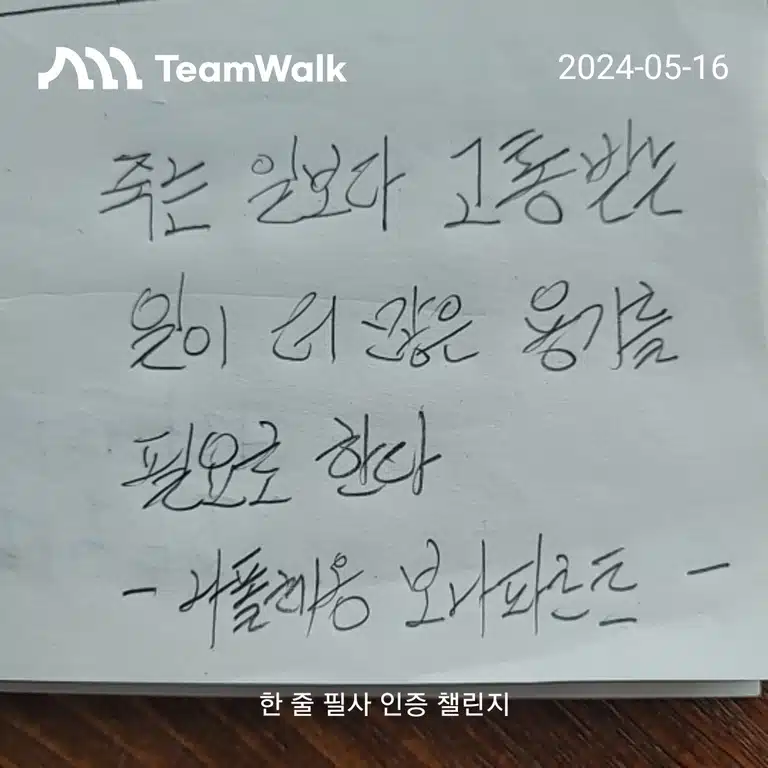 TeamWalk
2024-05-16
죽는 일보다 고통받는
일이 더 많은 용기를
필요로 한다
- 나폴레옹 보나파르트 -
한 줄 필사 인증 챌린지